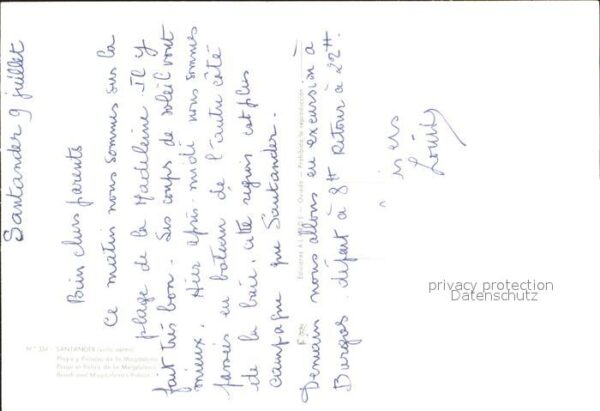 Santander 9 juillet
Bien chers parents
Ce matin nous sommes sur la
plage de la Madeleine. Il y
fait très bon. Les coups de soleil vont
mieux. Hier après-midi nous sommes
passés en bateau de l'autre côté
de la baie, cette région est plus
campagne que Santander.
Demain nous allons en excursion à
Burgos départ à 8H Retour à 22H.
Nº 334 - SANTANDER
Playa y Palacio de la Magdalena
Plage et Palais de la Magdalena
Beach and Magdalena's Palace
Ediciones - Oviedo - Prohibida la reproducción
privacy protection
Datenschutz